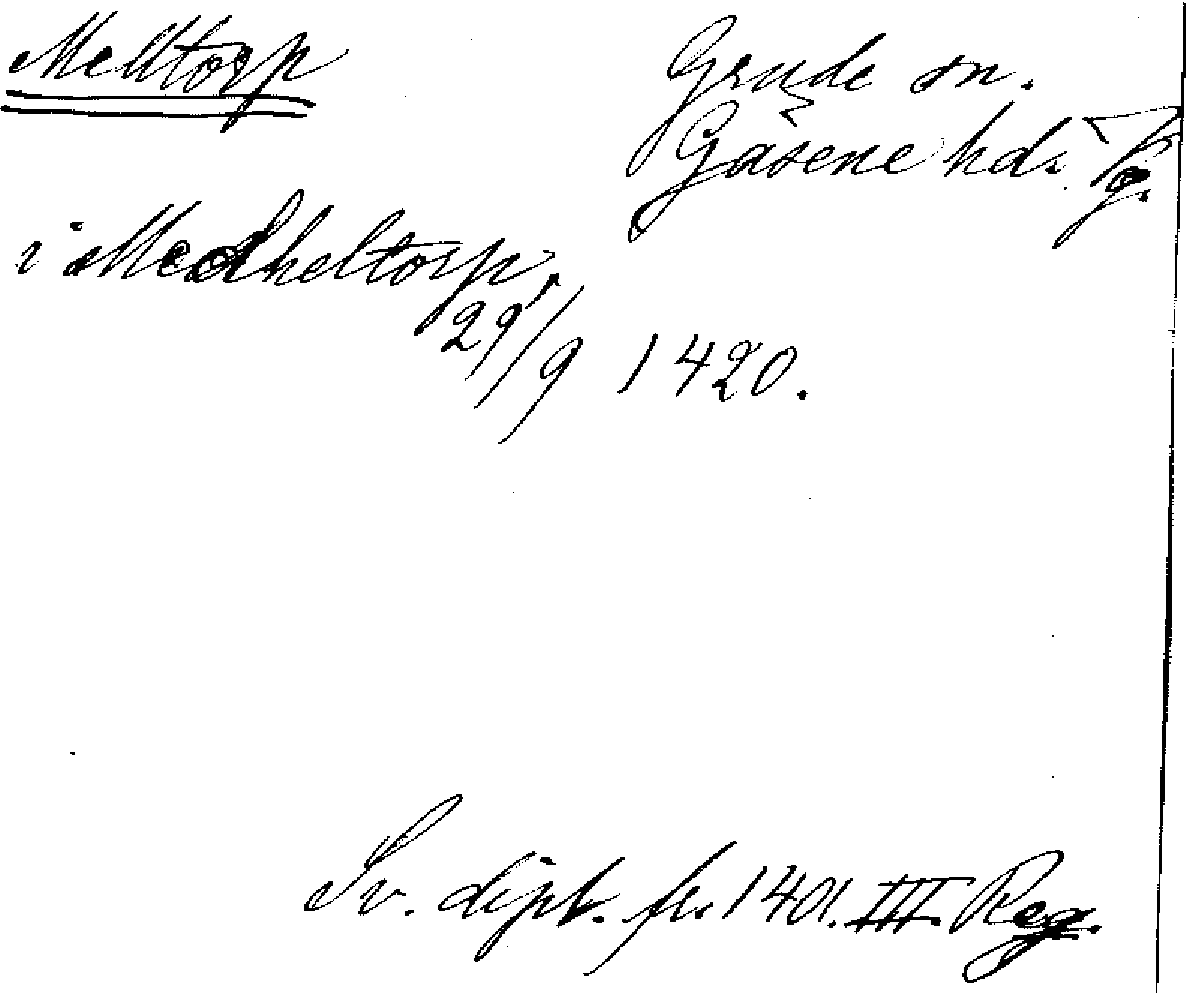 Melltorp
Grude sn.
Gäsene hd. Vg.
i Medheltorp,
29/9 1420.
Sv. dipl. fr. 1401. III. Reg.